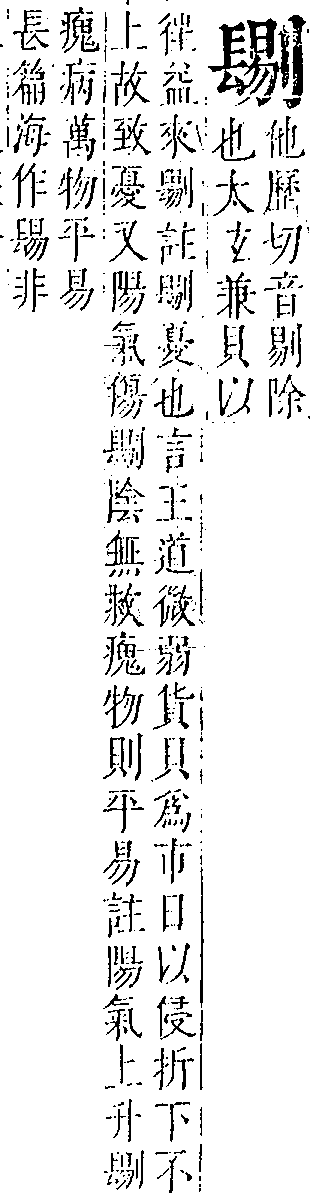 他歷切音剔除
也太玄兼貝以
徃益來註憂也言王道微弱貨貝為市日以侵折下不
上故致憂又陽氣傷陰無救瘣物則平易註陽氣上升
瘣病萬物平易
長篇海作非